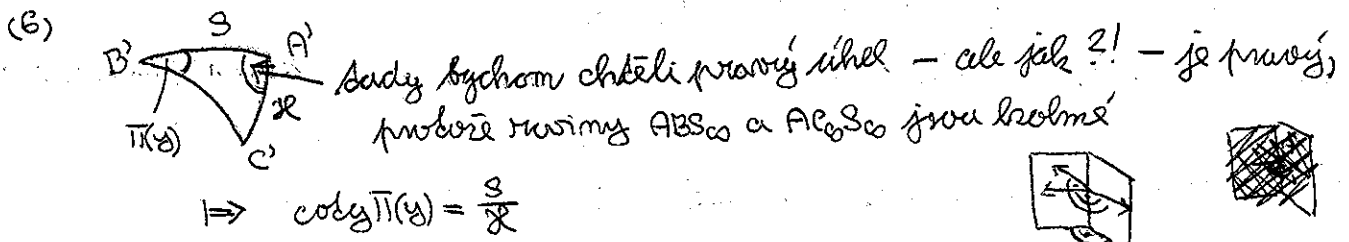 (6)
S
B' A' tady bychom chtěli pravý úhel – ale jak?! – je pravý,
x
Π(y) C' protože roviny ABS∞ a AC∞S∞ jsou kolmé
|⇒ cotg Π(y) = S/x